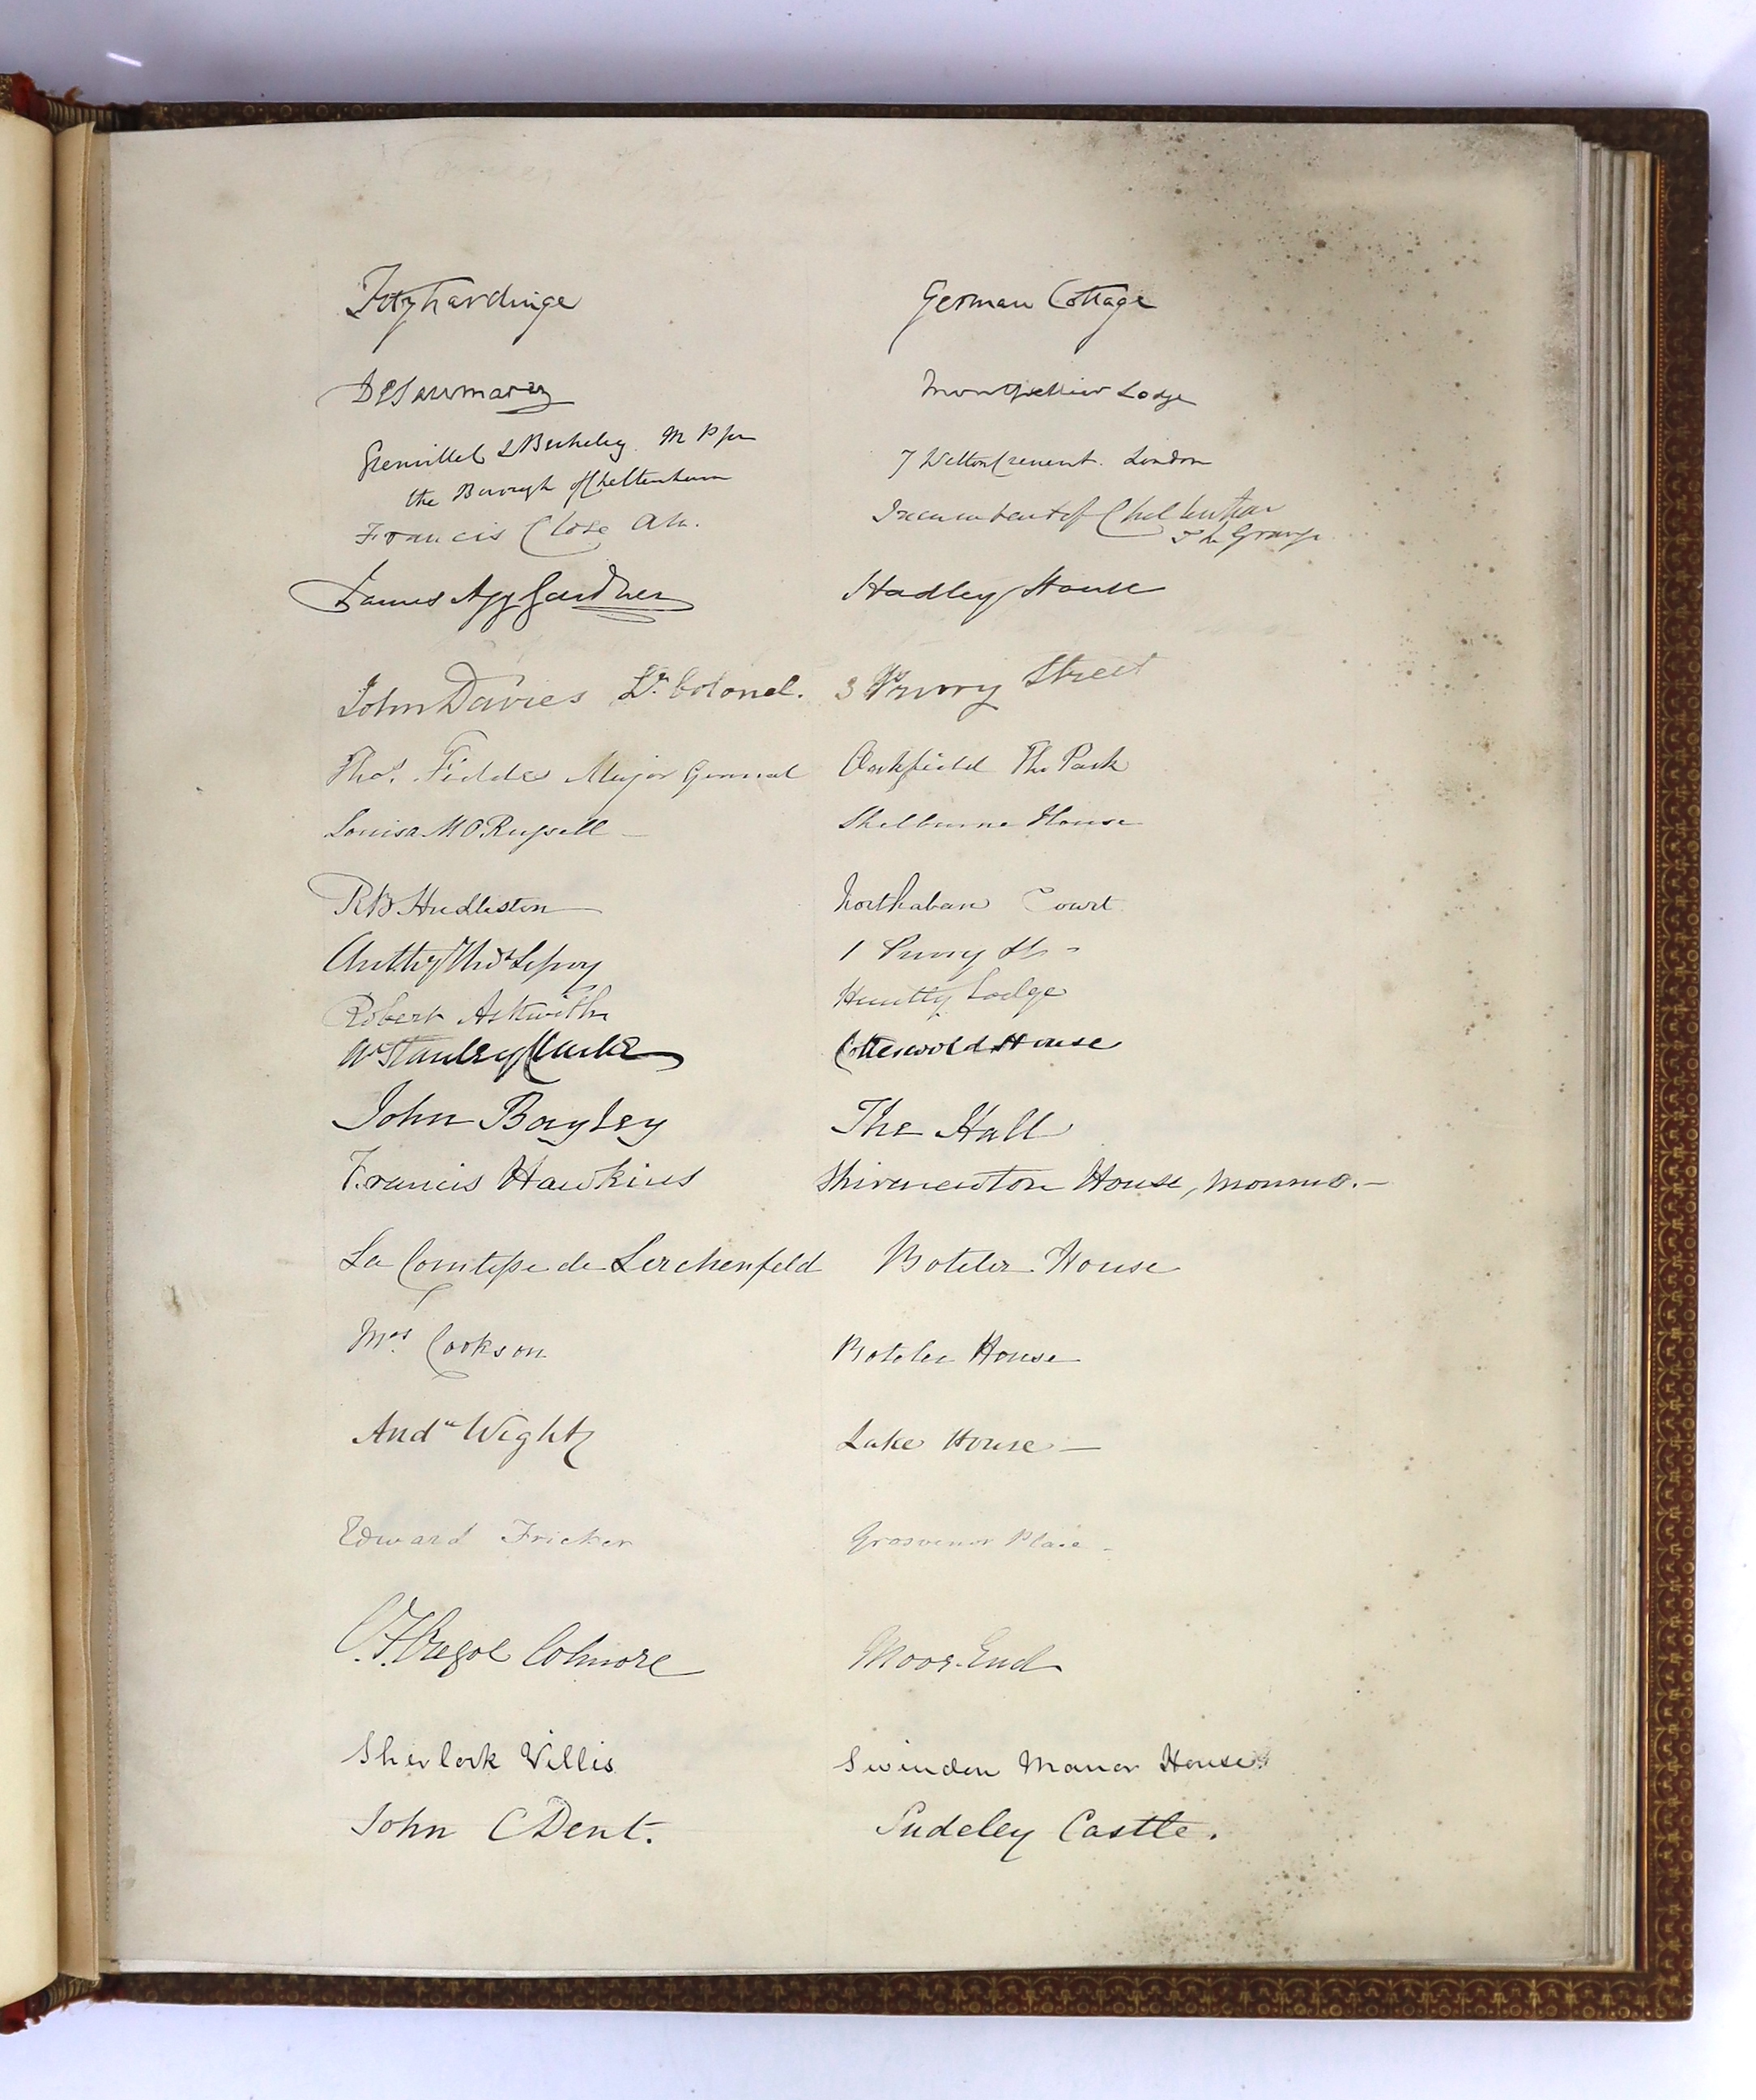 Fitzhardinge German Cottage
De Saumarez Montpellier Lodge
Grenville L Berkeley. M P for
the Borough of Cheltenham 7 Wilton Crescent. London
Francis Close AM. Incumbent of Cheltenham
The Grange
James Agg Gardner Hadley House
John Davies Lt. Colonel. 3 Priory Street
Thos. Fiddes Major General Oakfield The Park
Louisa M O Russell Shelburne House
R B Hudleston Court
Anthy Thos Lefroy 1 Priory St
Robert Askwith Huntly Lodge
Wm Stanley Clarke Cotteswold House
John Bayley The Hall
Francis Hawkins Shirenewton House, Monmo.
La Comtesse de Lerchenfeld Boteler House
Mrs. Cookson Boteler House
Andw Wight Lake House
Edward Fricker Grosvenor Place
C. F. Cregoe Colmore Moor-End
Sherlock Willis Swindon Manor House
John C Dent. Sudeley Castle.